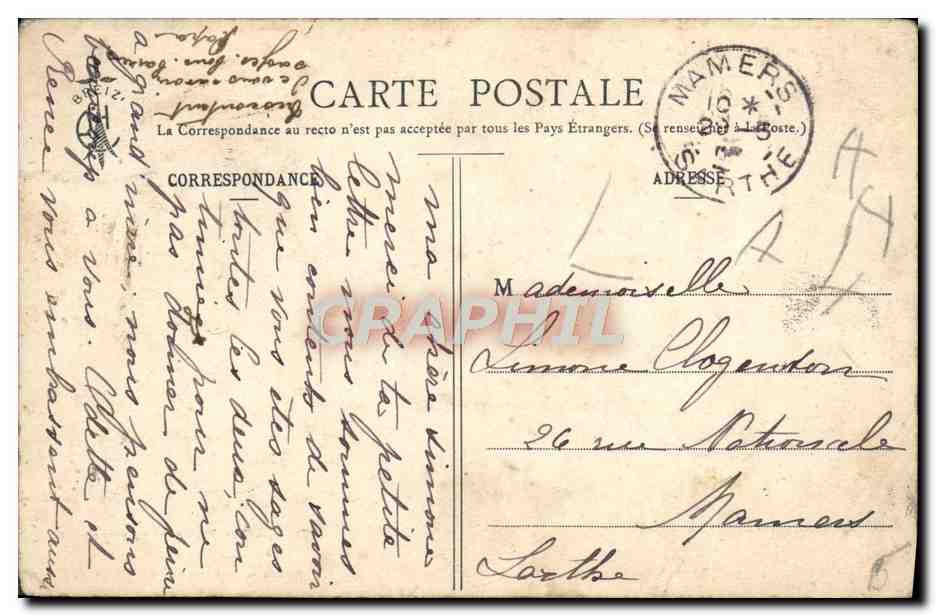 CARTE POSTALE
La Correspondance au recto n'est pas acceptée par tous les Pays Étrangers. (Se renseigner à la Poste.)
CORRESPONDANCE
ADRESSE
MAMERS
SARTHE
Mademoiselle
Simone
26 rue Nationale
Mamers
Sarthe
Ma chère Simone
merci de ta petite
lettre nous sommes
bien contents de savoir
que vous êtes sages
toutes les deux, con
tinuez pour ne
pas donner de peine
a grand mère, nous pensons
beaucoup a vous. Odette et
Renée vous embrassent aussi
Papa
CRAPHIL